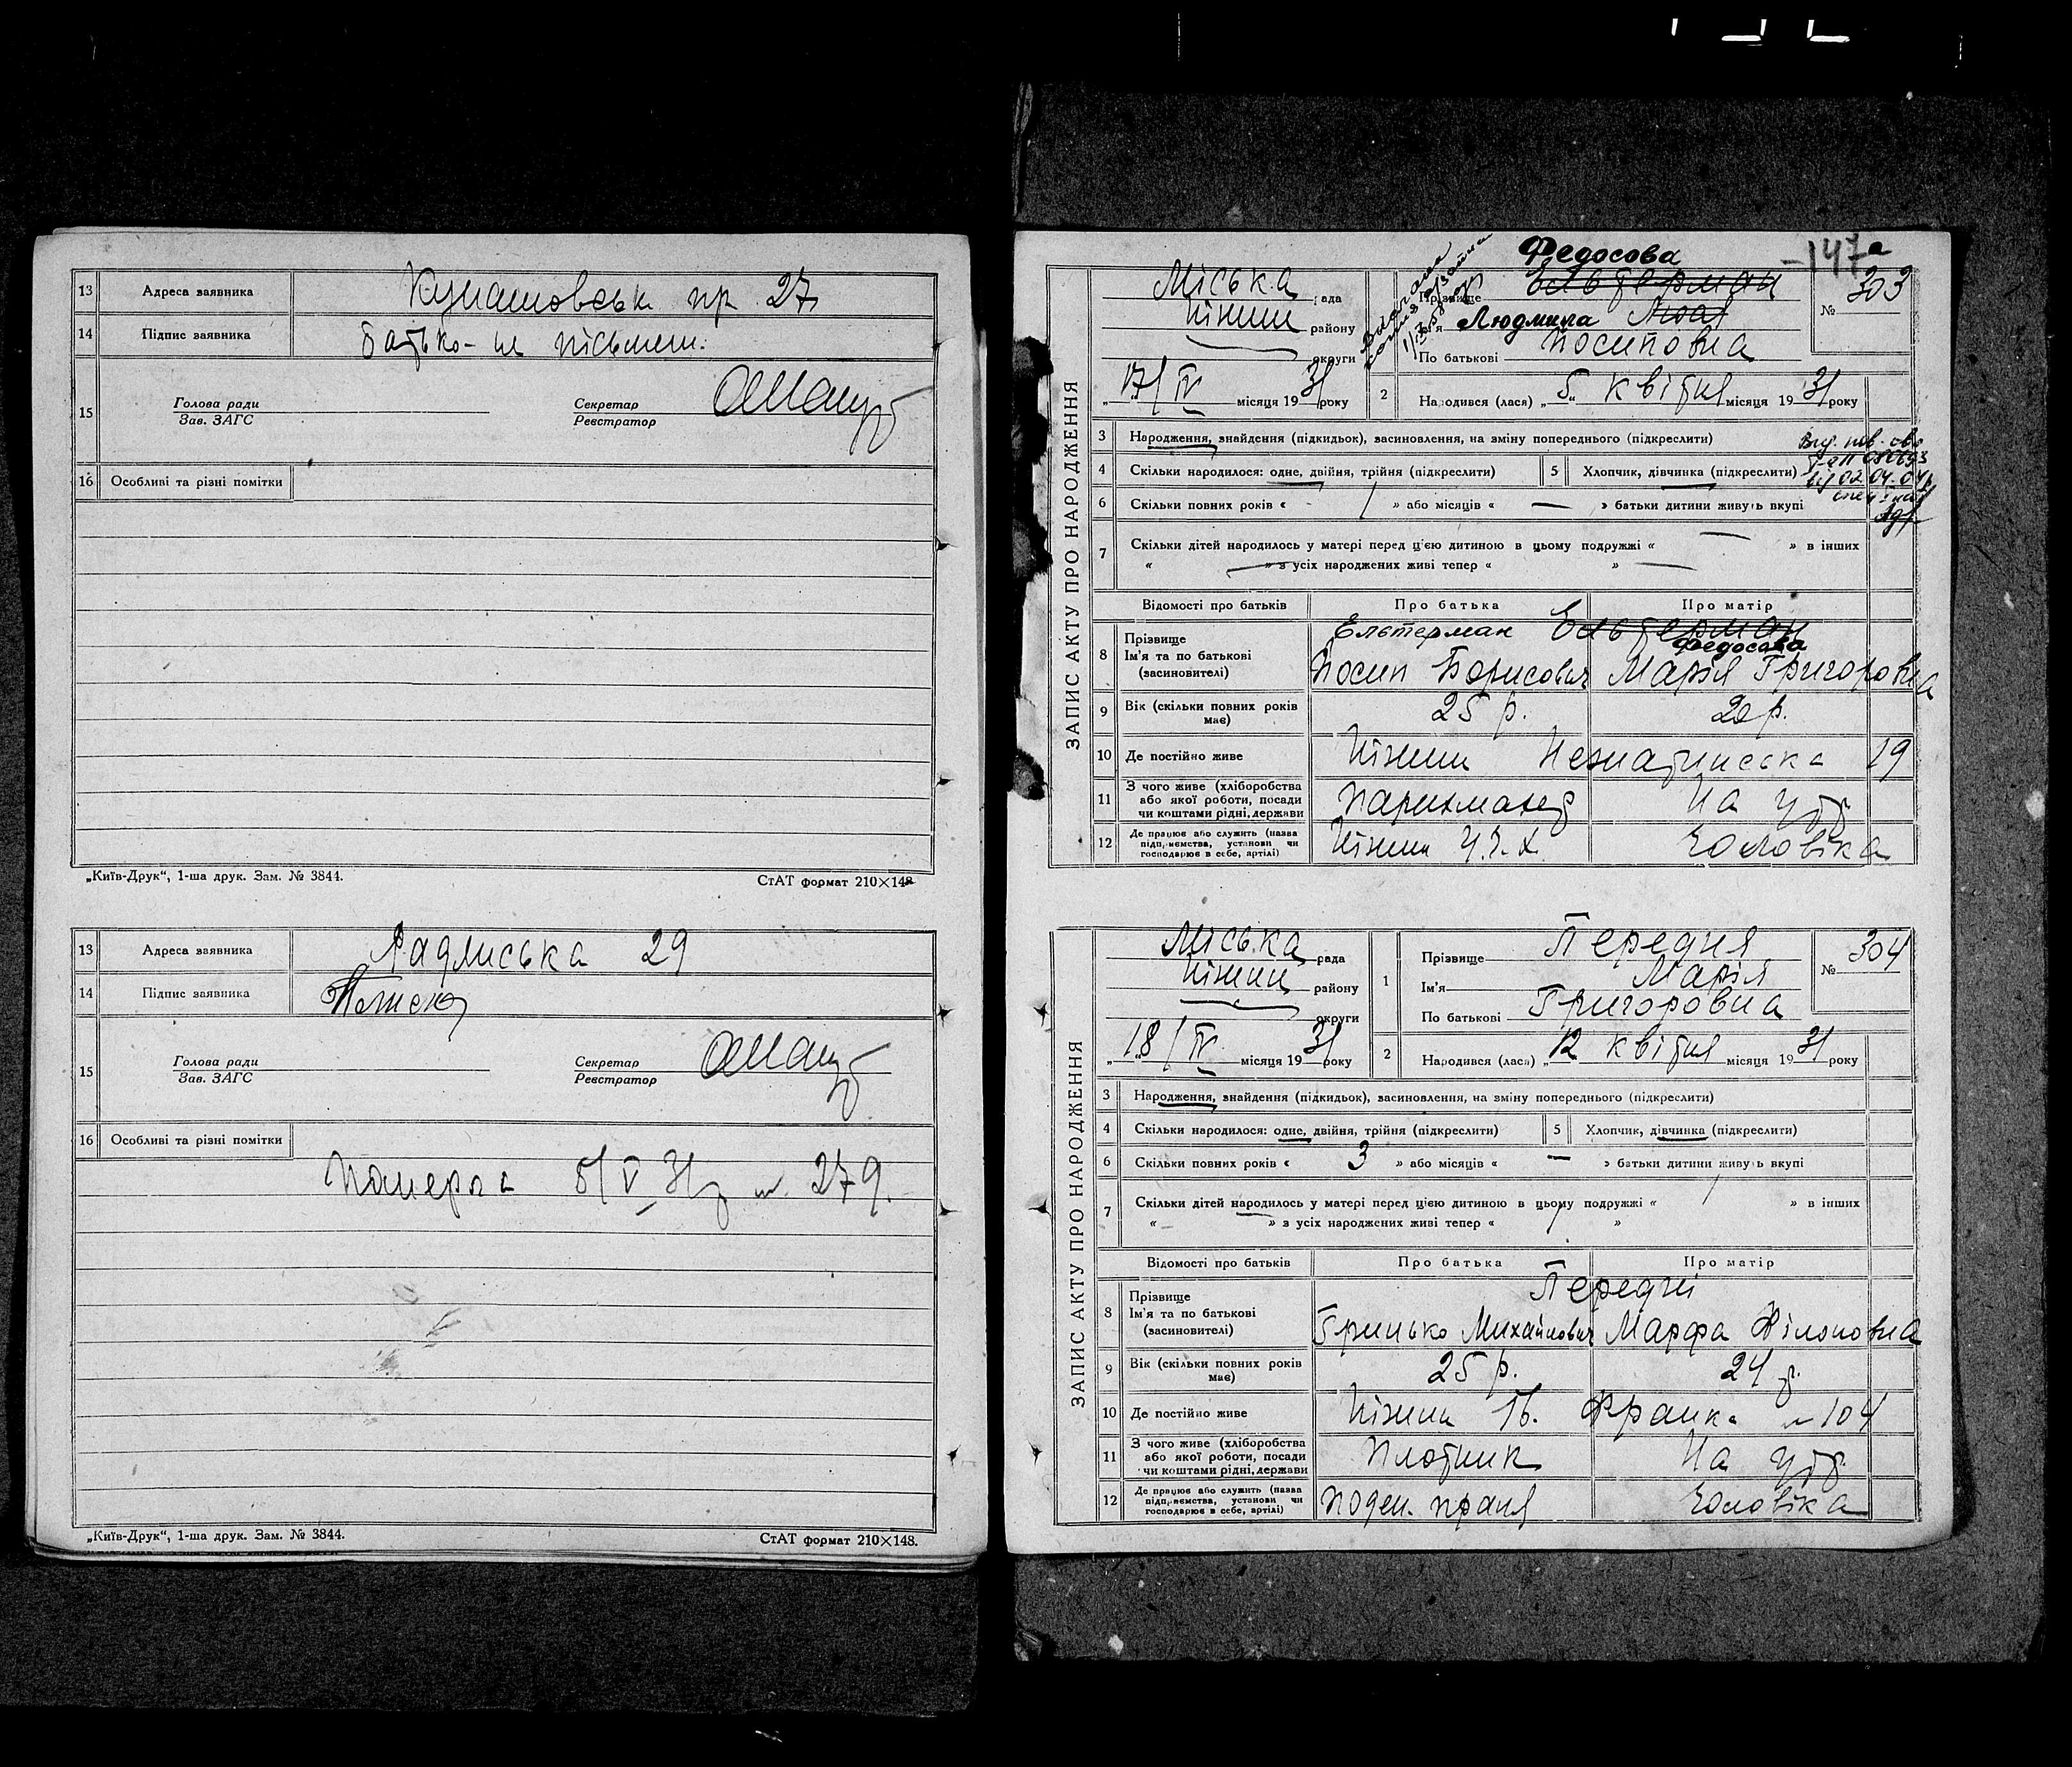 13 Адреса заявника Кунашовськ. пр. 27
14 Підпис заявника батько - не письмен.
15 Голова ради Секретар
Зав. ЗАГС Реєстратор
16 Особливі та різні помітки
„Київ-Друк“, 1-ша друк. Зам. № 3844. СтАТ формат 210×148
13 Адреса заявника 29
14 Підпис заявника
15 Голова ради Секретар
Зав. ЗАГС Реєстратор
16 Особливі та різні помітки
Померла 5/V 31р № 279.
„Київ-Друк“, 1-ша друк. Зам. № 3844. СтАТ формат 210×148.
Федосова -147а
ЗАПИС АКТУ ПРО НАРОДЖЕННЯ
Міська рада Прізвище Ельтерман № 303
Ніжин району Ім'я Людмила
округи По батькові Йосиповна
17/IV місяця 1931 року 2 Народився (лася) „5“ квітня місяця 1931 року
3 Народження, знайдення (підкидьок), засиновлення, на зміну попереднього (підкреслити)
4 Скільки народилося: одне, двійня, трійня (підкреслити) 5 Хлопчик, дівчинка (підкреслити)
6 Скільки повних років « / » або місяців « — » батьки дитини живуть вкупі
7 Скільки дітей народилось у матері перед цією дитиною в цьому подружжі « — » в інших
« — » з усіх народжених живі тепер « » —
Відомості про батьків Про батька Про матір
8 Прізвище Ельтерман Ельтерман
Федосова
Ім'я та по батькові Йосип Борисович Марія Григоровна
(засиновителі)
9 Вік (скільки повних років має) 25 р. 20 р.
10 Де постійно живе Ніжин 19
11 З чого живе (хліборобства або якої роботи, посади чи коштами рідні, держави На утр.
12 Де працює або служить (назва підприємства, установи чи господарює в себе, артілі) Ніжин чоловіка
ЗАПИС АКТУ ПРО НАРОДЖЕННЯ
Міська рада 1 Прізвище Передня № 304
Ніжин району Ім'я Марія
округи По батькові Григоровна
„18/IV місяця 1931 року 2 Народився (лася) „12 квітня місяця 1931 року
3 Народження, знайдення (підкидьок), засиновлення, на зміну попереднього (підкреслити)
4 Скільки народилося: одне, двійня, трійня (підкреслити) 5 Хлопчик, дівчинка (підкреслити)
6 Скільки повних років « 3 » або місяців « — » батьки дитини живуть вкупі
7 Скільки дітей народилось у матері перед цією дитиною в цьому подружжі « / » в інших
« » з усіх народжених живі тепер « / »
Відомості про батьків Про батька Про матір
8 Прізвище Передні
Ім'я та по батькові Гринько Михайлович Марфа Філоновна
(засиновителі)
9 Вік (скільки повних років має) 25 р. 24 р.
10 Де постійно живе Ніжин Ів. Франка № 104
11 З чого живе (хліборобства або якої роботи, посади чи коштами рідні, держави Плотник На утр.
12 Де працює або служить (назва підприємства, установи чи господарює в себе, артілі) поден. праця чоловіка